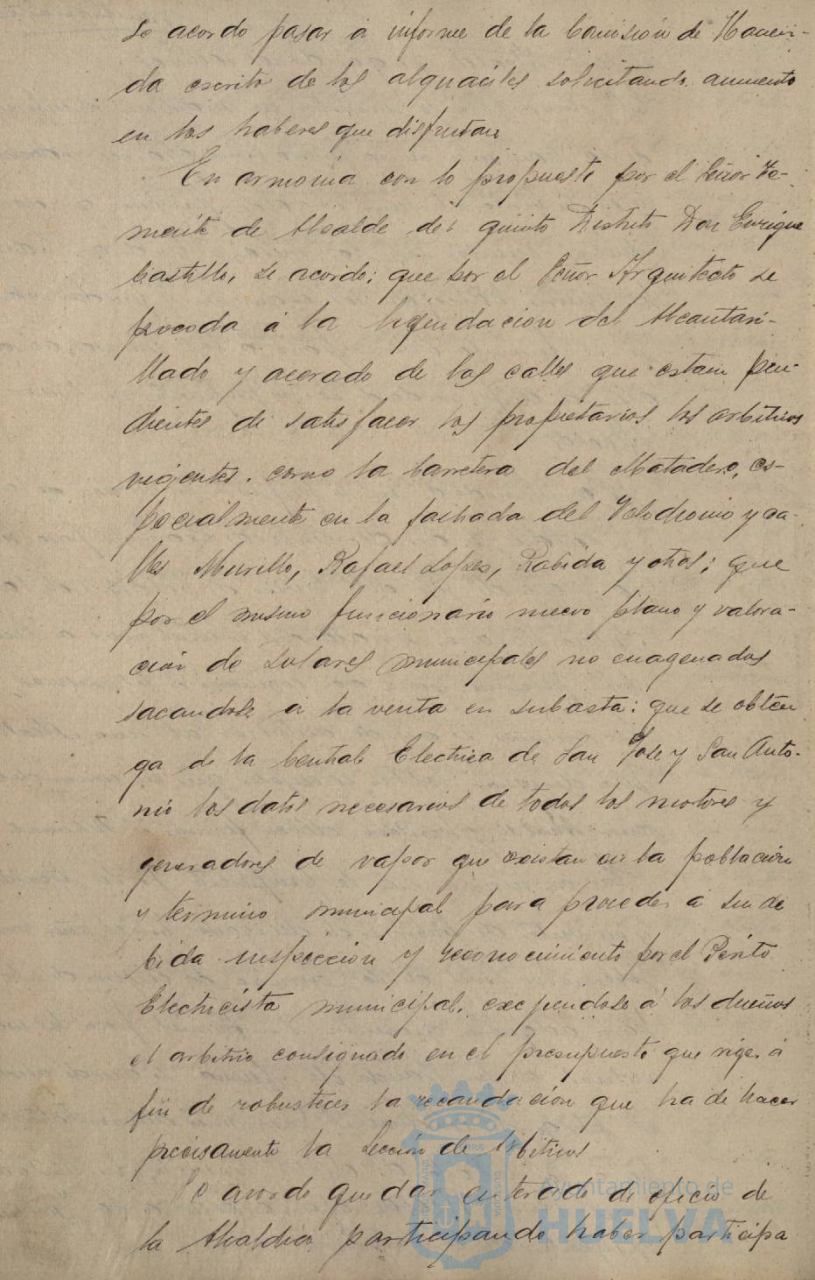 Se acordo pasar a informe de la Comisión de Hacien-
da escrito de los alguaciles solicitando aumento
en los haberes que disfrutan
En armonia con lo propuesto por el Señor Te-
niente de Alcalde del quinto Distrito Don Enrique
Castillo, se acordo; que por el Señor Arquitecto se
proceda á la liquidacion del Alcantari-
llado y acerado de las calles que estan pen-
dientes de satisfacer los propietarios los arbitrios
vigentes. como la Carretera del Matadero, es-
pecialmente en la fachada del Velodromo y ca-
lles Murillo, Rafael Lopez, Rabida y otras; que
por el mismo funcionario nuevo plano y valora-
cion de solares municipales no enagenados
sacandose a la venta en subasta: que se obten
ga de la Central Electrica de San Jose y San Anto-
nio los datos necesarios de todos los motores y
generadores de vapor que existan en la población
y termino municipal para proceder á su de
bida inspeccion y reconocimiento por el Perito
Electricista municipal. exigiendose á los dueños
el arbitrio consignado en el presupuesto que rige, á
fin de robustecer la recaudación que ha de hacer
precisamente la Sección de Arbitrios
Se acordo quedar enterado de oficio de
la Alcaldia participando haber participa
Ayuntamiento de
HUELVA